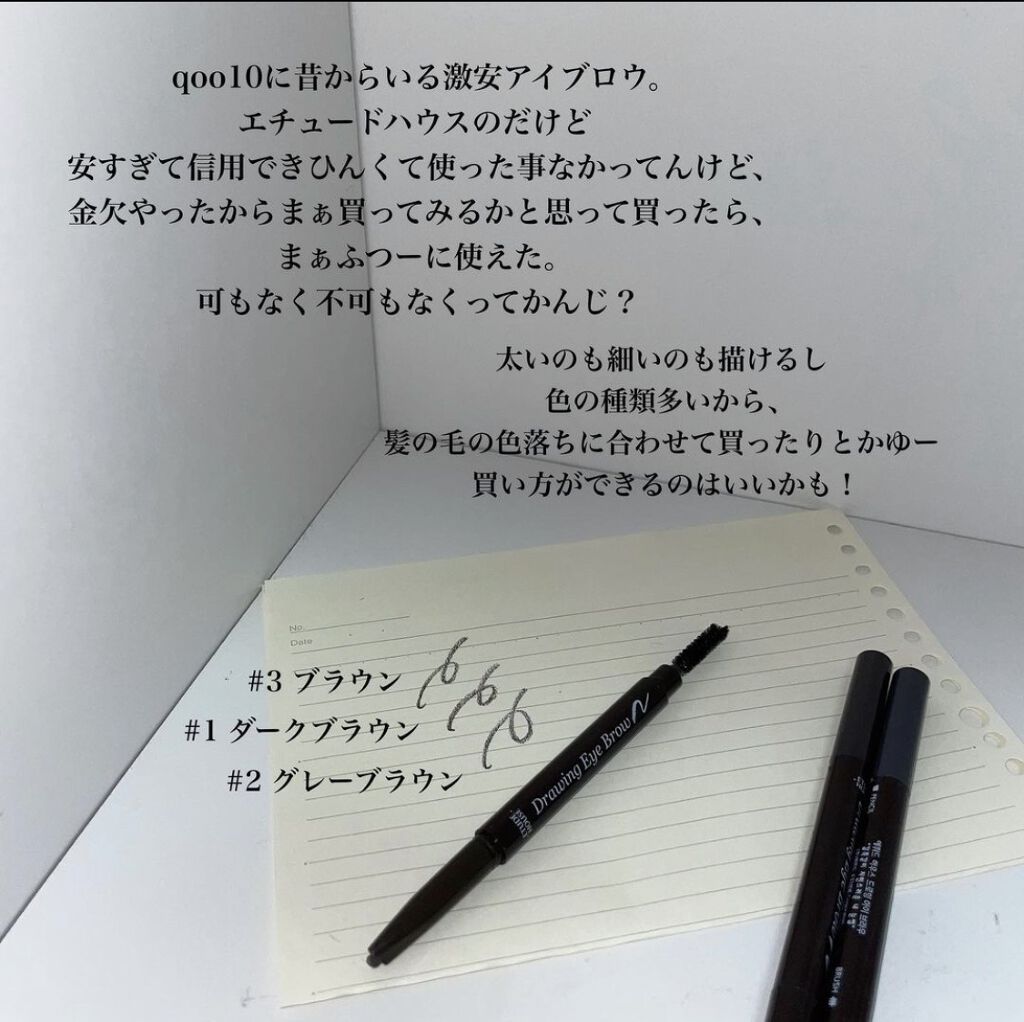 qoo10に昔からいる激安アイブロウ。
エチュードハウスのだけど
安すぎて信用できひんくて使った事なかってんけど、
金欠やったからまぁ買ってみるかと思って買ったら、
まぁふつーに使えた。
可もなく不可もなくってかんじ？
太いのも細いのも描けるし
色の種類多いから、
髪の毛の色落ちに合わせて買ったりとかゆー
買い方ができるのはいいかも！
No.
Date
#3 ブラウン
#1 ダークブラウン
#2 グレーブラウン
Drawing Eye Brow
ETUDE HOUSE
PENCIL
BRUSH